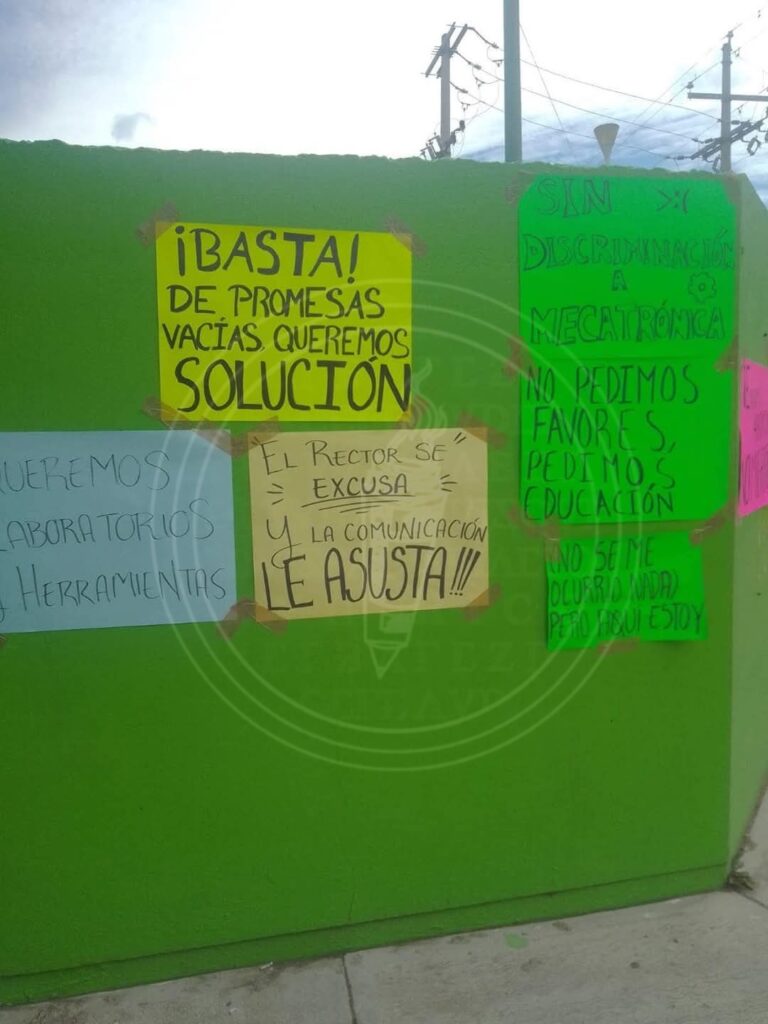 ¡BASTA!
DE PROMESAS
VACÍAS QUEREMOS
SOLUCIÓN
QUEREMOS
LABORATORIOS
Y HERRAMIENTAS
EL RECTOR SE
EXCUSA
Y LA COMUNICACIÓN
LE ASUSTA!!!
SIN
DISCRIMINACIÓN
A
MECATRÓNICA
NO PEDIMOS
FAVORES,
PEDIMOS
EDUCACIÓN
(NO SE ME
OCURRIO NADA)
PERO AQUI ESTOY